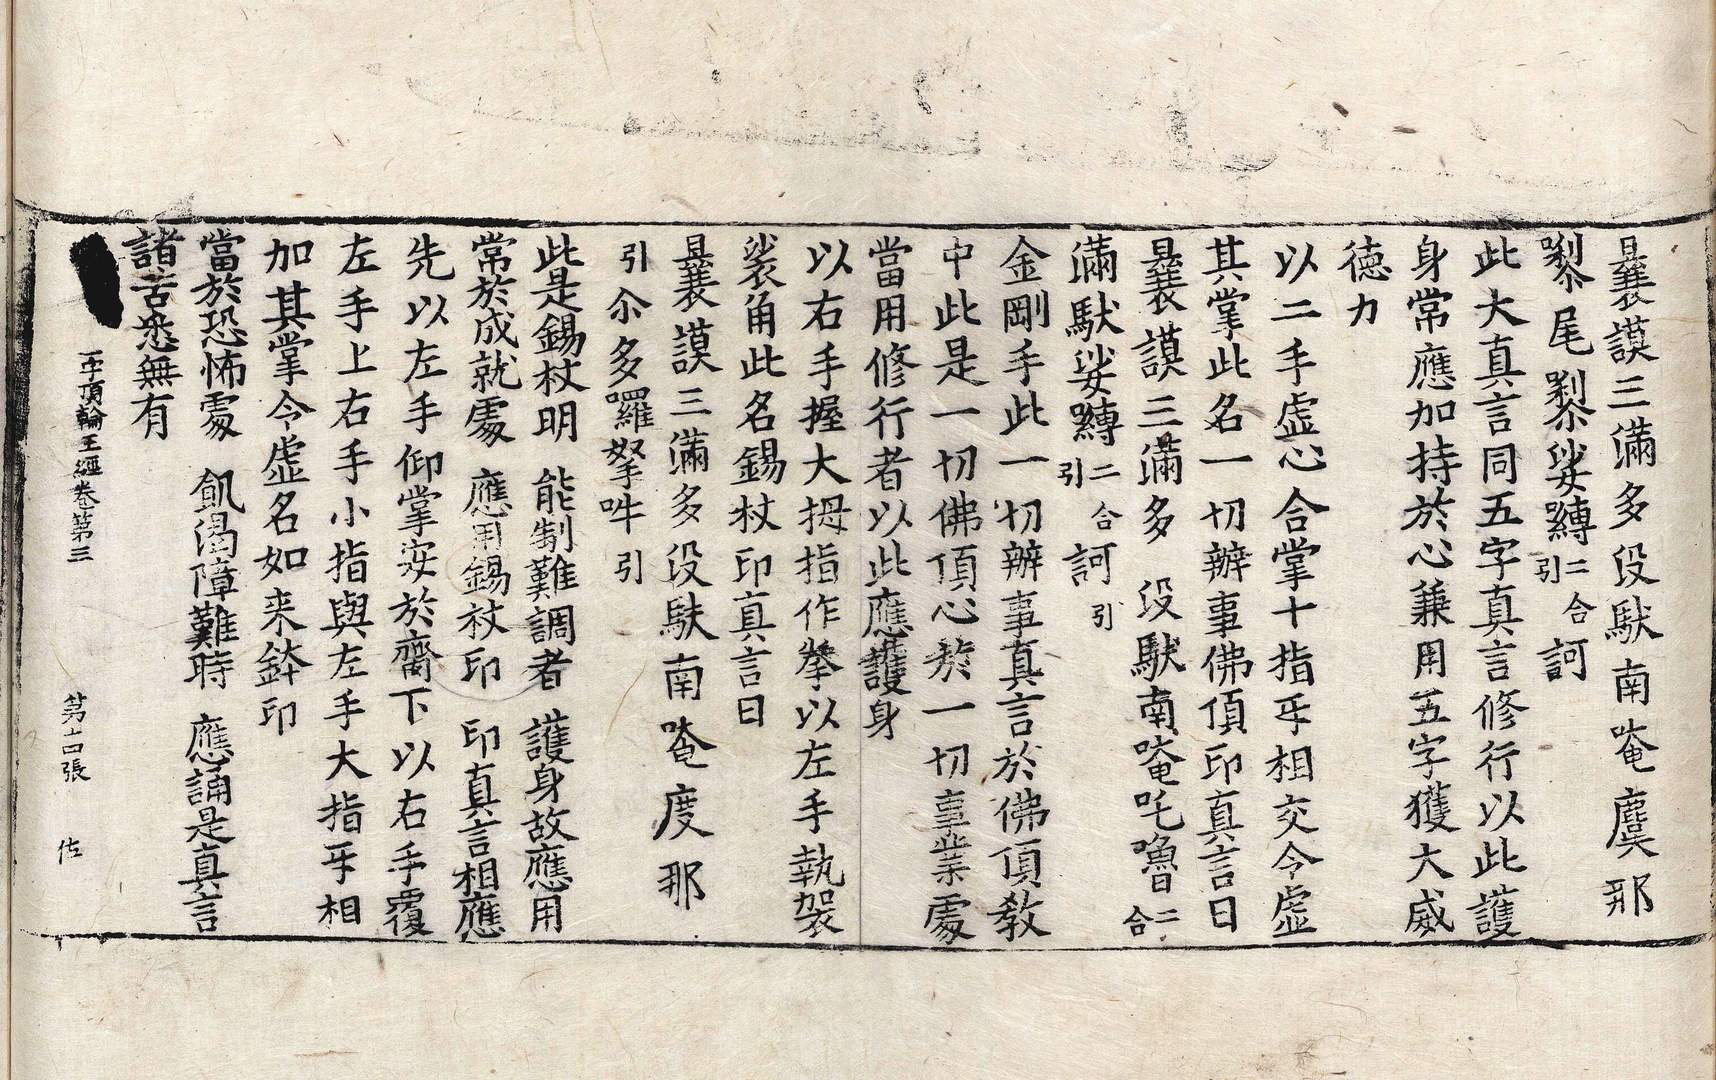 曩謨三滿多没馱南唵麌那
㗚尾㗚娑嚩二合引訶
此大真言同五字真言修行以此護
身常應加持於心兼用五字獲大威
德力
以二手虛心合掌十指互相交令虛
其掌此名一切辦事佛頂印真言曰
曩謨三滿多没馱南唵吒嚕二合
滿馱娑嚩二合引訶引
金剛手此一切辦事真言於佛頂教
中此是一切佛頂心於一切事業處
當用修行者以此應護身
以右手握大拇指作拳以左手執袈
裟角此名錫杖印真言曰
曩謨三滿多没馱南唵度那
引尒多囉拏吽引
此是錫杖明 能制難調者 護身故應用
常於成就處 應用錫杖印 印真言相應
先以左手仰掌安於齎下以右手覆
左手上右手小指與左手大指互相
加其掌令虛名如来鉢印
當於恐怖處 飢渴障難時 應誦是真言
諸苦悉無有
一字頂輪王經卷第三 第十四張 佐